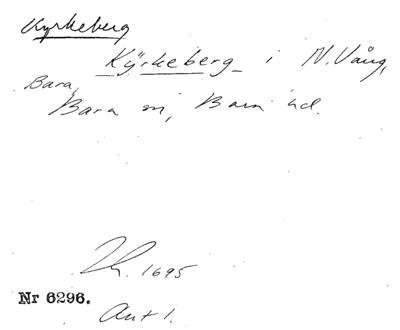 Kyrkeberg
Kÿrkeberg i N. Vång,
Bara,
Bara sn, Bara hd.
1695
Nr 6296.
Ant 1.